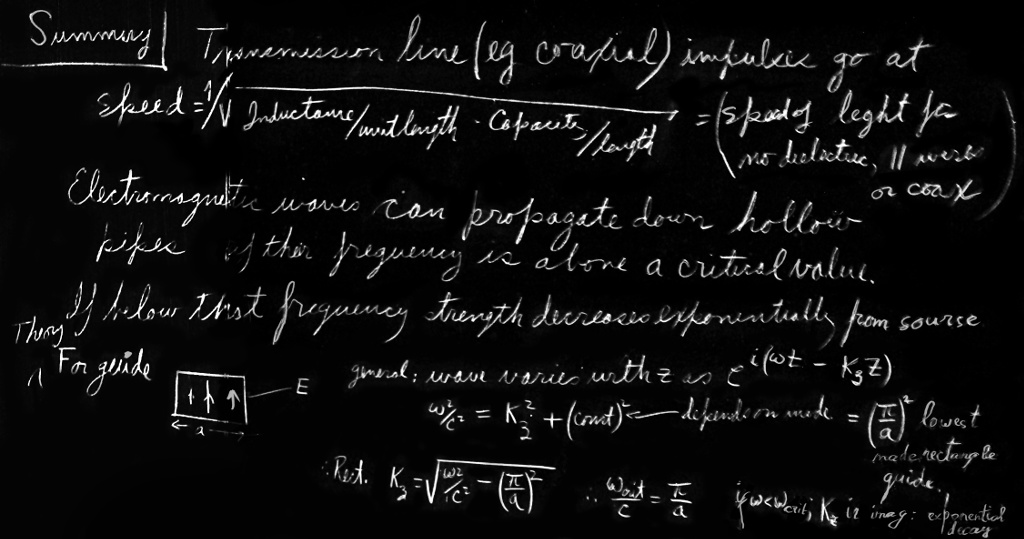 Summary
Transmission line (eg coaxial) impulses go at
speed = 1/√ Inductance/unit length · Capacity/length = (speed of light for
no dielectric, || wires
or coax)
Electromagnetic waves can propagate down hollow
pipes if their frequency is above a critical value.
If below that frequency strength decreases exponentially from sourse
Theory
For guide
E
a
general: wave varies with z as e^i(ωt − K₃z)
ω²/c² = K₃² + (const)² ← depends on mode = (π/a)² lowest
mode rectangle
guide.
∴ Rect. K₃ = √ω²/c² − (π/a)² ∴ ωcrit/c = π/a if ω<ωcrit; Kz is imag: exponential
decay